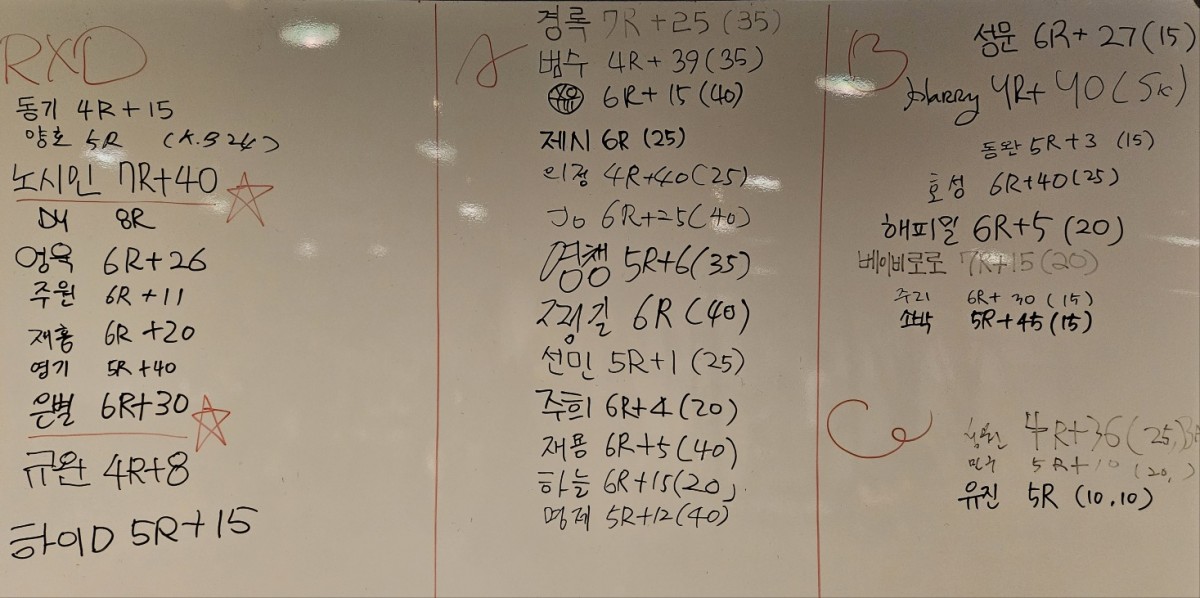 RXD
동기 4R+15
양호 5R (K.B 24)
노시민 7R+40
DY 8R
엉욱 6R+26
주원 6R+11
재홍 6R+20
영기 5R+40
은별 6R+30
규완 4R+8
하이D 5R+15
A
경록 7R+25(35)
범수 4R+39(35)
6R+15(40)
제시 6R(25)
의정 4R+40(25)
Jo 6R+25(40)
영쟁 5R+6(35)
6R(40)
선민 5R+1(25)
주희 6R+4(20)
재용 6R+5(40)
하늘 6R+15(20)
명제 5R+12(40)
B
성문 6R+27(15)
Harry 4R+40(5k)
동완 5R+3 (15)
호성 6R+40(25)
해피밀 6R+5(20)
베이비로로 7R+15(20)
주리 6R+30(15)
5R+45(15)
C
4R+36(25)
5R+10(20,)
유진 5R (10,10)